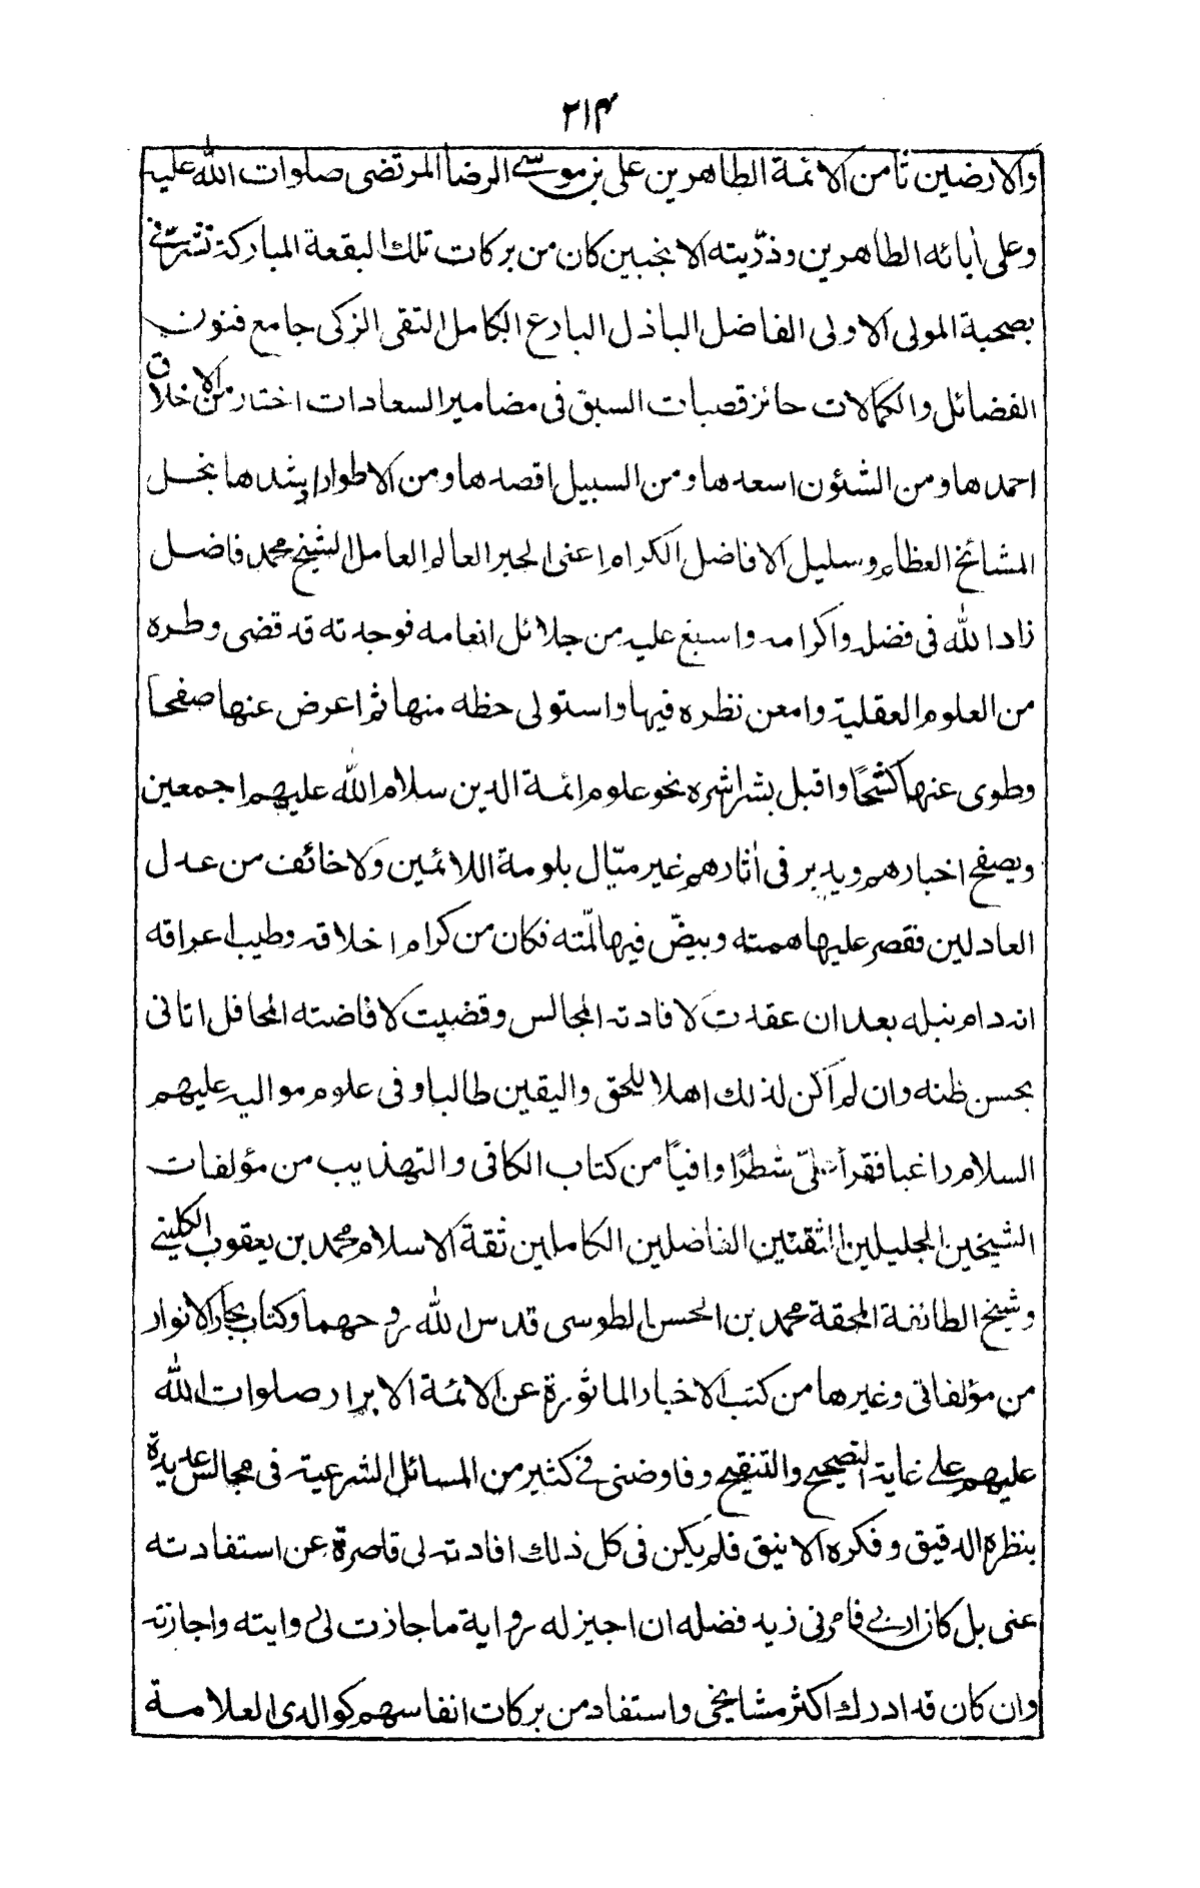 ۲۱۴
والارضين ثامن الائمة الطاهرين على بن موسے الرضا المرتضى صلوات الله عليه
وعلى أبائه الطاهرين وذرّيته الانجبين كان من بركات تلك البقعة المباركة تشرّفنے
بصحبة المولى الاولى الفاضل الباذل البارع الكامل التقى الزكى جامع فنون
الفضائل والكمالات حائز قصبات السبق فى مضامير السعادات اختار من الاخلاق
احمدها ومن الشئون اسعدها ومن السبيل اقصدها ومن الاطوار ارشدها نجل
المشائخ العظام وسليل الافاضل الكرام اعنى الحبر العالم العامل الشيخ محمد فاضل
زاد الله فى فضله واكرامه واسبغ عليه من جلائل انعامه فوجدته قد قضى وطره
من العلوم العقلية وامعن نظره فيها واستولى حظه منها ثم اعرض عنها صفحا
وطوى عنها كشحًا واقبل بشراشره نحو علوم ائمة الدين سلام الله عليهم اجمعين
ويصفح اخبارهم ويدبر فى أثارهم غير مبّال بلومة اللائمين ولا خائف من عدل
العادلين فقصر عليها همته وبيضّ فيها لمّته فكان من كرام اخلاقه وطيب اعراقه
انه دام نبله بعد ان عقدت لافادته المجالس وقضيت لافاضته المحافل اتانى
بحسن ظنه وان لم اكن لذلك اهلا للحق واليقين طالبا وفى علوم مواليه عليهم
السلام راغبا فقرأ علىّ شطرًا وافيًا من كتاب الكافى والتهذيب من مؤلفات
الشيخين الجليلين الثقتين الفاضلين الكاملين ثقة الاسلام محمد بن يعقوب الكلينے
وشيخ الطائفة المحقة محمد بن الحسن الطوسى قدس الله روحهما وكتاب بحار الانوار
من مؤلفاتى وغيرها من كتب الاخبار الماثورة عن الائمة الابرار صلوات الله
عليهم علے غاية التصحيح والتنقيح وفاوضنى فے كثير من المسائل الشرعية فى مجالس عديدة
بنظره الدقيق وفكره الانيق فلم يكن فى كل ذلك افادته لى قاصرة عن استفادته
عنى بل كان اربے فامرنى زيد فضله ان اجيز له رواية ما جازت لى روايته واجازته
وان كان قد ادرك اكثر مشايخى واستفاد من بركات انفاسهم كوالدى العلامة